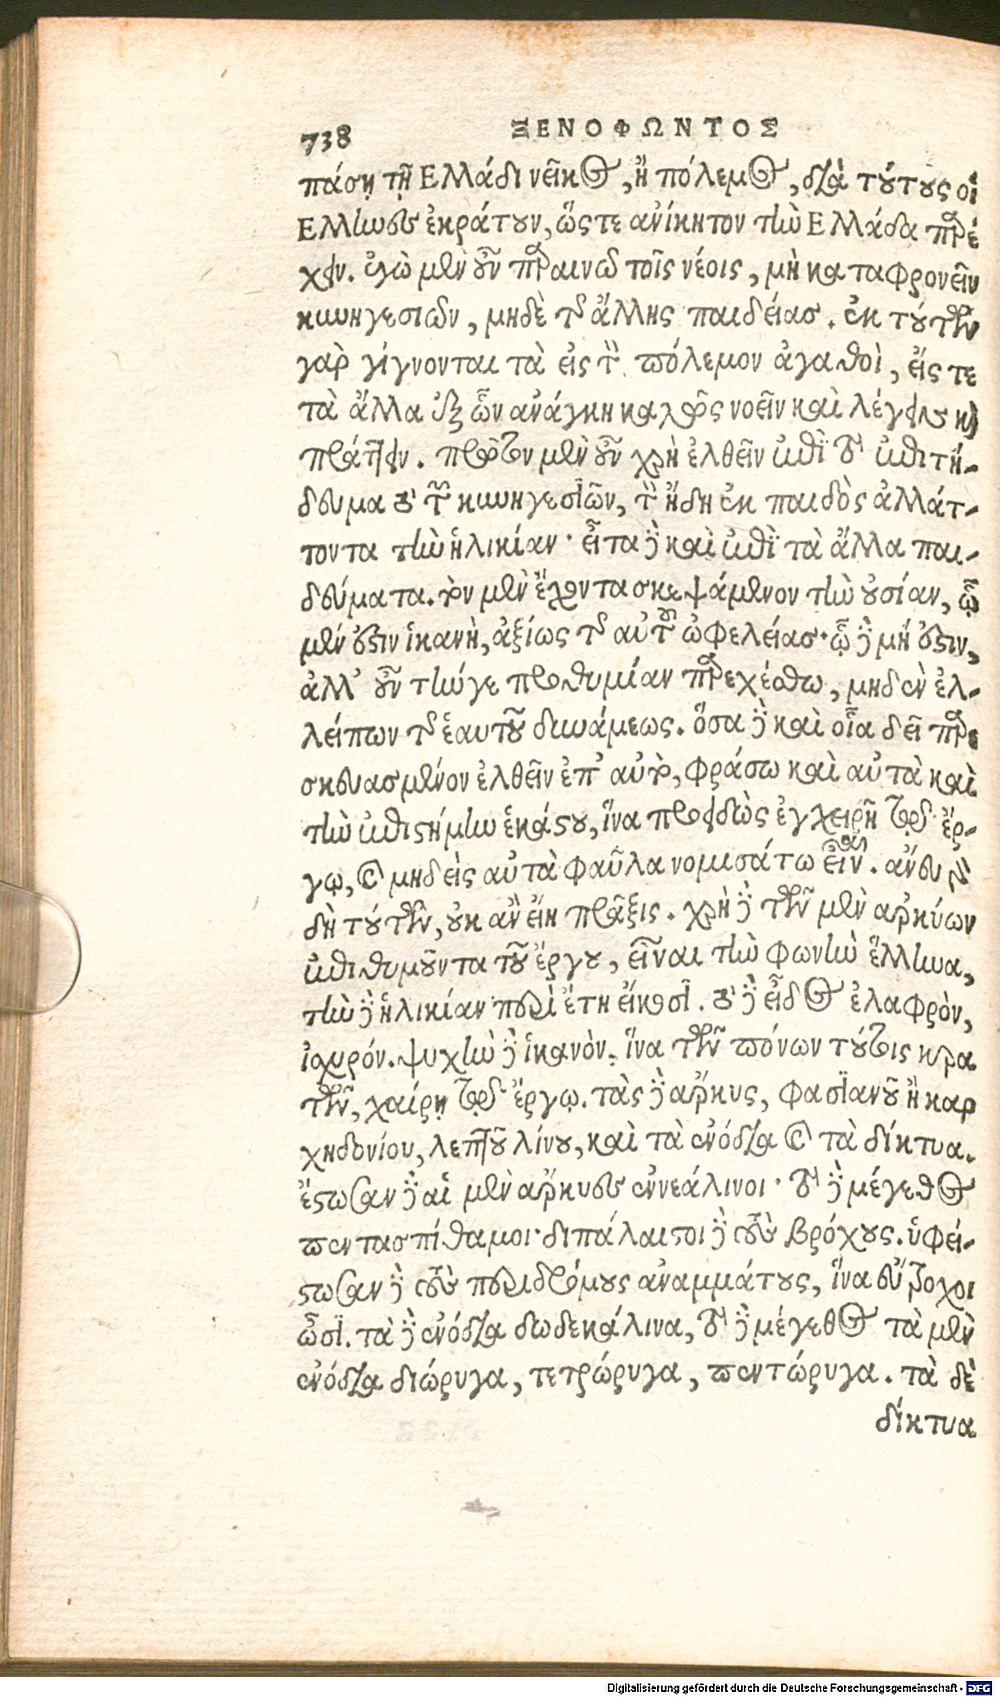 738 ΞΕΝΟΦΩΝΤΟΣ
πάσῃ τῇ Ελλάδι νεῖκος, ἢ πόλεμος, διὰ τούτους οἱ
Ελληνες ἐκράτουν, ὥςτε ἀνίκητον τὴν Ελλάδα παρέ
χειν. ἐγὼ μὲν οὖν παραινῶ τοῖς νέοις, μὴ καταφρονεῖν
κυνηγεσιῶν, μηδὲ τῆς ἄλλης παιδείας. ἐκ τούτων
γὰρ γίγνονται τὰ εἰς τὸν πόλεμον ἀγαθοὶ, εἴς τε
τὰ ἄλλα ἐξ ὧν ἀνάγκη καλῶς νοεῖν καὶ λέγειν καὶ
πράττειν. πρῶτον μὲν οὖν χρὴ ἐλθεῖν ἐπὶ τὸ ἐπιτή-
δευμα τὸ τῶν κυνηγεσιῶν, τὸν ἤδη ἐκ παιδὸς ἀλλάτ-
τοντα τὴν ἡλικίαν· εἶτα δὲ καὶ ἐπὶ τὰ ἄλλα παι-
δεύματα. τὸν μὲν ἔχοντα σκεψάμενον τὴν οὐσίαν, ᾧ
μέν ἐστιν ἱκανὴ, ἀξίως τῆς αὐτοῦ ὠφελείας· ᾧ δὲ μή ἐστιν,
ἀλλ' οὖν τήν γε προθυμίαν παρεχέσθω, μηδὲν ἐλ-
λείπων τῆς ἑαυτοῦ δυνάμεως. ὅσα δὲ καὶ οἷα δεῖ παρε
σκευασμένον ἐλθεῖν ἐπ' αὐτὸ, φράσω καὶ αὐτὰ καὶ
τὴν ἐπιστήμην ἑκάστου, ἵνα προειδὼς ἐγχειρῇ τῷ ἔρ-
γῳ, καὶ μηδεὶς αὐτὰ φαῦλα νομισάτω εἶναι. ἄνευ γὰρ
δὴ τούτων, οὐκ ἂν εἴη πρᾶξις. χρὴ δὲ τῶν μὲν ἀρκύων
ἐπιθυμοῦντα τοῦ ἔργου, εἶναι τὴν φωνὴν ἕλληνα,
τὴν δὲ ἡλικίαν περὶ ἔτη εἴκοσι. τὸ δὲ εἶδος ἐλαφρὸν,
ἰσχυρόν. ψυχὴν δὲ ἱκανὸν. ἵνα τῶν πόνων τούτοις κρα
τῶν, χαίρῃ τῷ ἔργῳ. τὰς δὲ ἄρκυς, φασιανοῦ ἢ καρ
χηδονίου, λεπτοῦ λίνου, καὶ τὰ ἐνόδια καὶ τὰ δίκτυα.
ἔστωσαν δὲ αἱ μὲν ἄρκυες ἐννεάλινοι· τὸ δὲ μέγεθος
πεντασπίθαμοι· διπάλαιστοι δὲ τοὺς βρόχους. ὑφεί-
στωσαν δὲ τοὺς περιδρόμους ἀναμμάτους, ἵνα εὔβροχοι
ὦσι. τὰ δὲ ἐνόδια δωδεκάλινα, τὸ δὲ μέγεθος τὰ μὲν
ἐνόδια διώρυγα, τετρώρυγα, πεντώρυγα. τὰ δὲ
δίκτυα
Digitalisierung gefördert durch die Deutsche Forschungsgemeinschaft - DFG